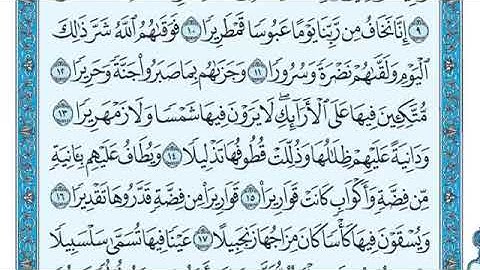 ۝٩ إِنَّا نَخَافُ مِن رَّبِّنَا يَوْمًا عَبُوسًا قَمْطَرِيرًا ۝١٠ فَوَقَىٰهُمُ ٱللَّهُ شَرَّ ذَٰلِكَ
ٱلْيَوْمِ وَلَقَّىٰهُمْ نَضْرَةً وَسُرُورًا ۝١١ وَجَزَىٰهُم بِمَا صَبَرُوا۟ جَنَّةً وَحَرِيرًا ۝١٢
مُّتَّكِـِٔينَ فِيهَا عَلَى ٱلْأَرَآئِكِ ۖ لَا يَرَوْنَ فِيهَا شَمْسًا وَلَا زَمْهَرِيرًا ۝١٣
وَدَانِيَةً عَلَيْهِمْ ظِلَـٰلُهَا وَذُلِّلَتْ قُطُوفُهَا تَذْلِيلًا ۝١٤ وَيُطَافُ عَلَيْهِم بِـَٔانِيَةٍ
مِّن فِضَّةٍ وَأَكْوَابٍ كَانَتْ قَوَارِيرَا۠ ۝١٥ قَوَارِيرَا۟ مِن فِضَّةٍ قَدَّرُوهَا تَقْدِيرًا ۝١٦
وَيُسْقَوْنَ فِيهَا كَأْسًا كَانَ مِزَاجُهَا زَنجَبِيلًا ۝١٧ عَيْنًا فِيهَا تُسَمَّىٰ سَلْسَبِيلًا